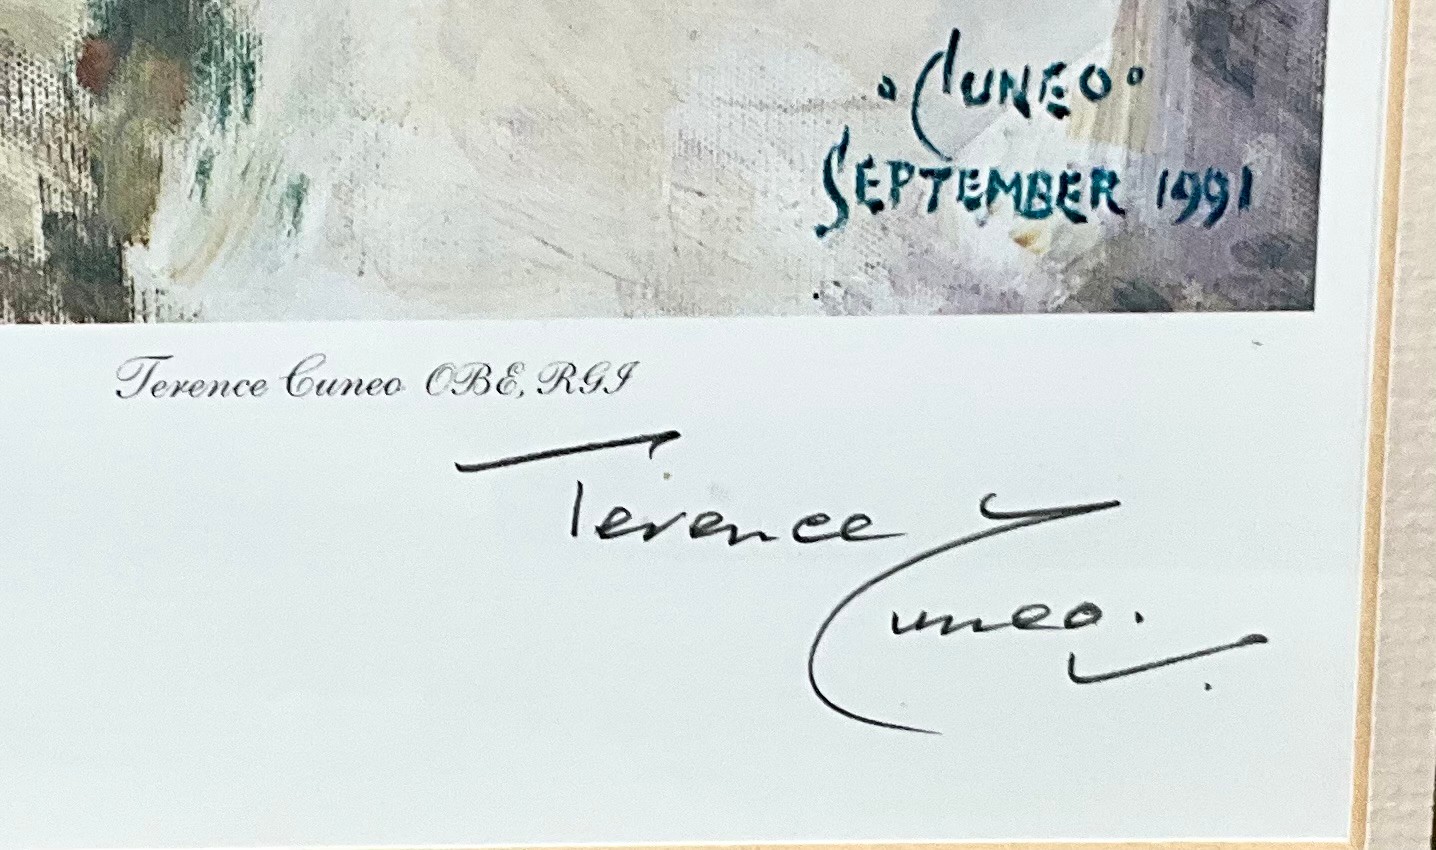 CUNEO
SEPTEMBER 1991
Terence Cuneo OBE, RGI
Terence
Cuneo.